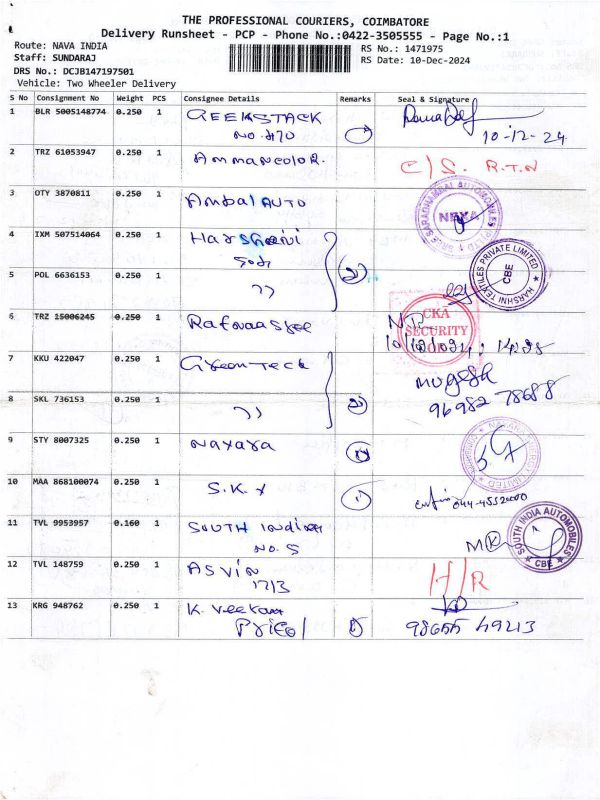 THE PROFESSIONAL COURIERS, COIMBATORE
Delivery Runsheet - PCP - Phone No.:0422-3505555 - Page No.:1
Route: NAVA INDIA
RS No.: 1471975
Staff: SUNDARAJ
RS Date: 10-Dec-2024
DRS No.: DCJB147197501
Vehicle: Two Wheeler Delivery
S No Consignment No Weight PCS Consignee Details Remarks Seal & Signature
1 BLR 5005148774 0.250 1 GEEKSTACK
NO. 470
10-12-24
2 TRZ 61053947 0.250 1 Ammancolor. C/S. R.T.N
3 OTY 3870811 0.250 1 Ambal AUTO
NEXA
4 IXM 507514064 0.250 1 Harsheini
HARSHNI TEXTILES PRIVATE LIMITED
CBE
5 POL 6636153 0.250 1 "
6 TRZ 15006245 0.250 1
CKA
SECURITY
7 KKU 422047 0.250 1 Green Teck
Mugesh
8 SKL 736153 0.250 1 "
96982 78688
9 STY 8007325 0.250 1
10 MAA 868100074 0.250 1 S.K.
11 TVL 9953957 0.160 1 SOUTH Indian
NO. 5
SOUTH INDIA AUTOMOBILES
CBE
12 TVL 148759 0.250 1 ASVIN
1713
H/R
13 KRG 948762 0.250 1 K. Veeram
Pricol
98655 49213